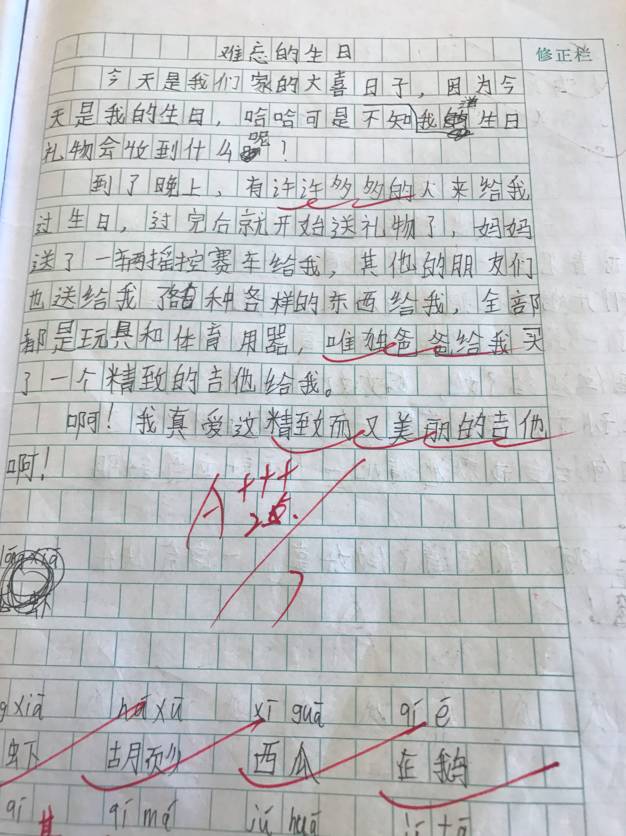 难忘的生日
修正栏
今天是我们家的大喜日子，因为今
天是我的生日，哈哈可是不知我生日
礼物会收到什么呢？
到了晚上，有许许多多的人来给我
过生日，过完后就开始送礼物了，妈妈
送了一辆摇控赛车给我，其他的朋友们
也送给我了各种各样的东西给我，全部
都是玩具和体育用器，唯独爸爸给我买
了一个精致的吉他给我。
啊！我真爱这精致而又美丽的吉他
啊！
A+++
g xiā hú xū xī guā qǐ é
虾 胡须 西瓜 企鹅
qí qí mǎ jú huā jí tā